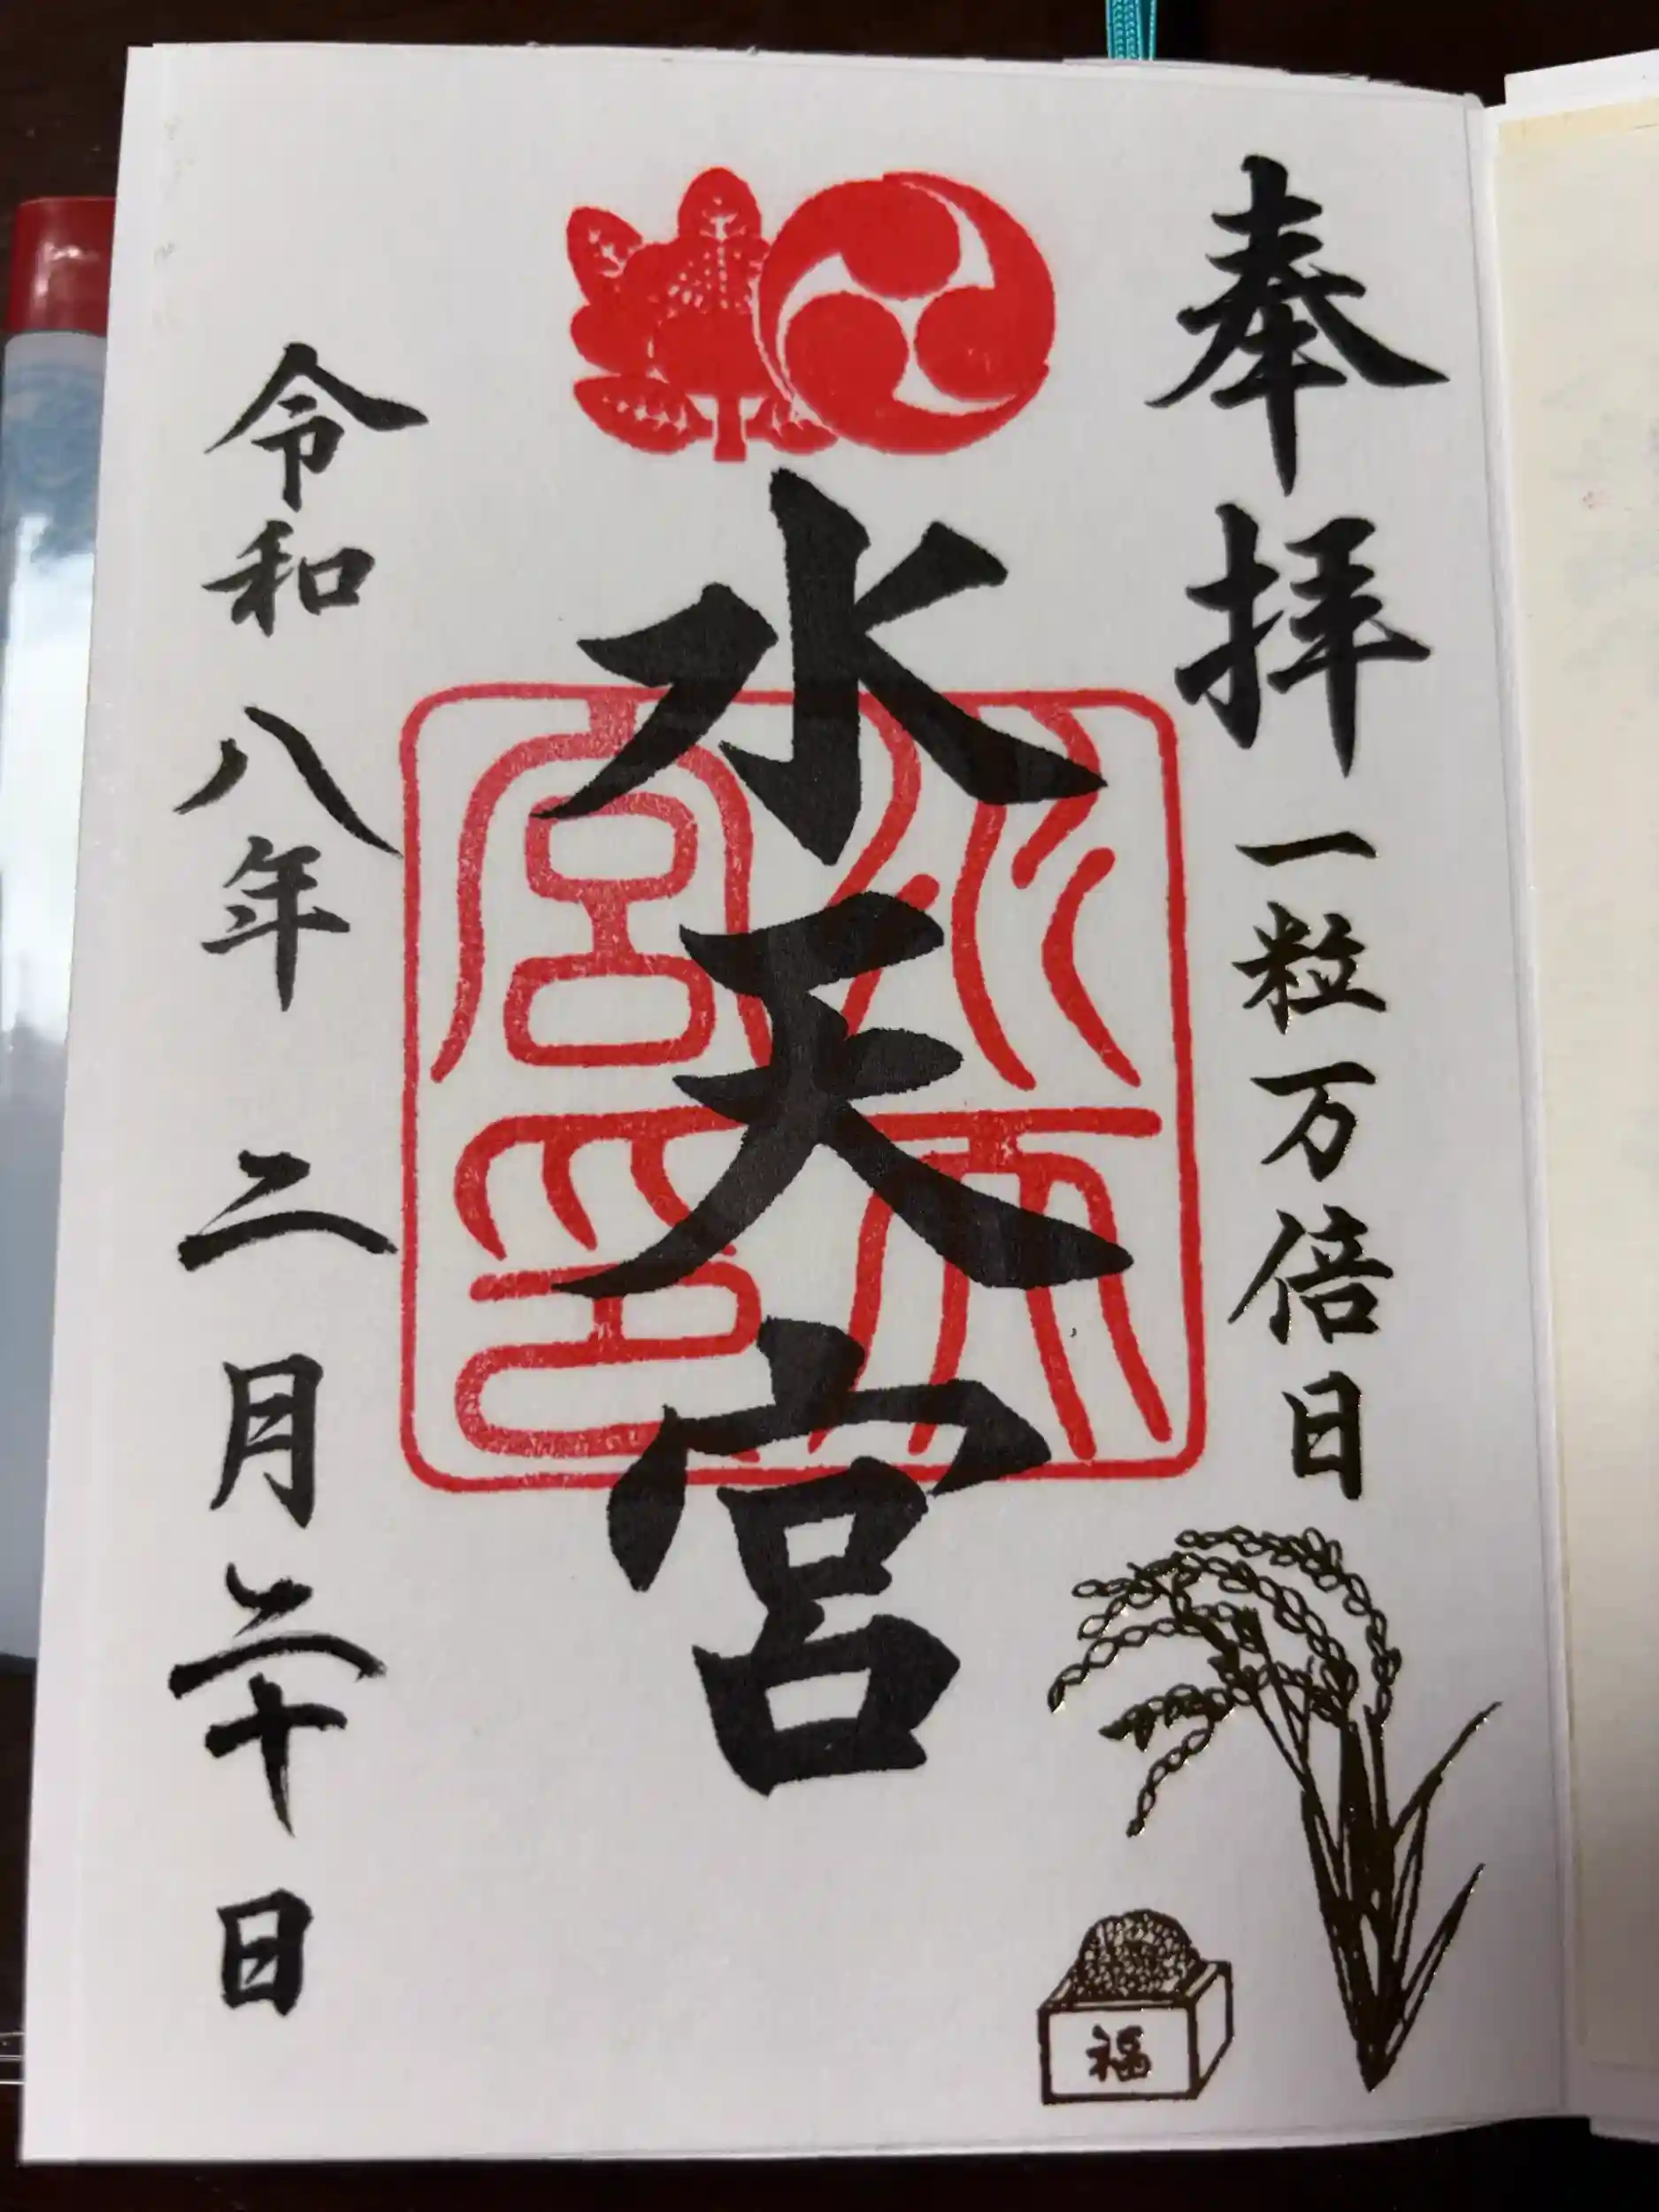 奉拝 一粒万倍日
福
水天宮
水天宮印
令和八年二月二十日